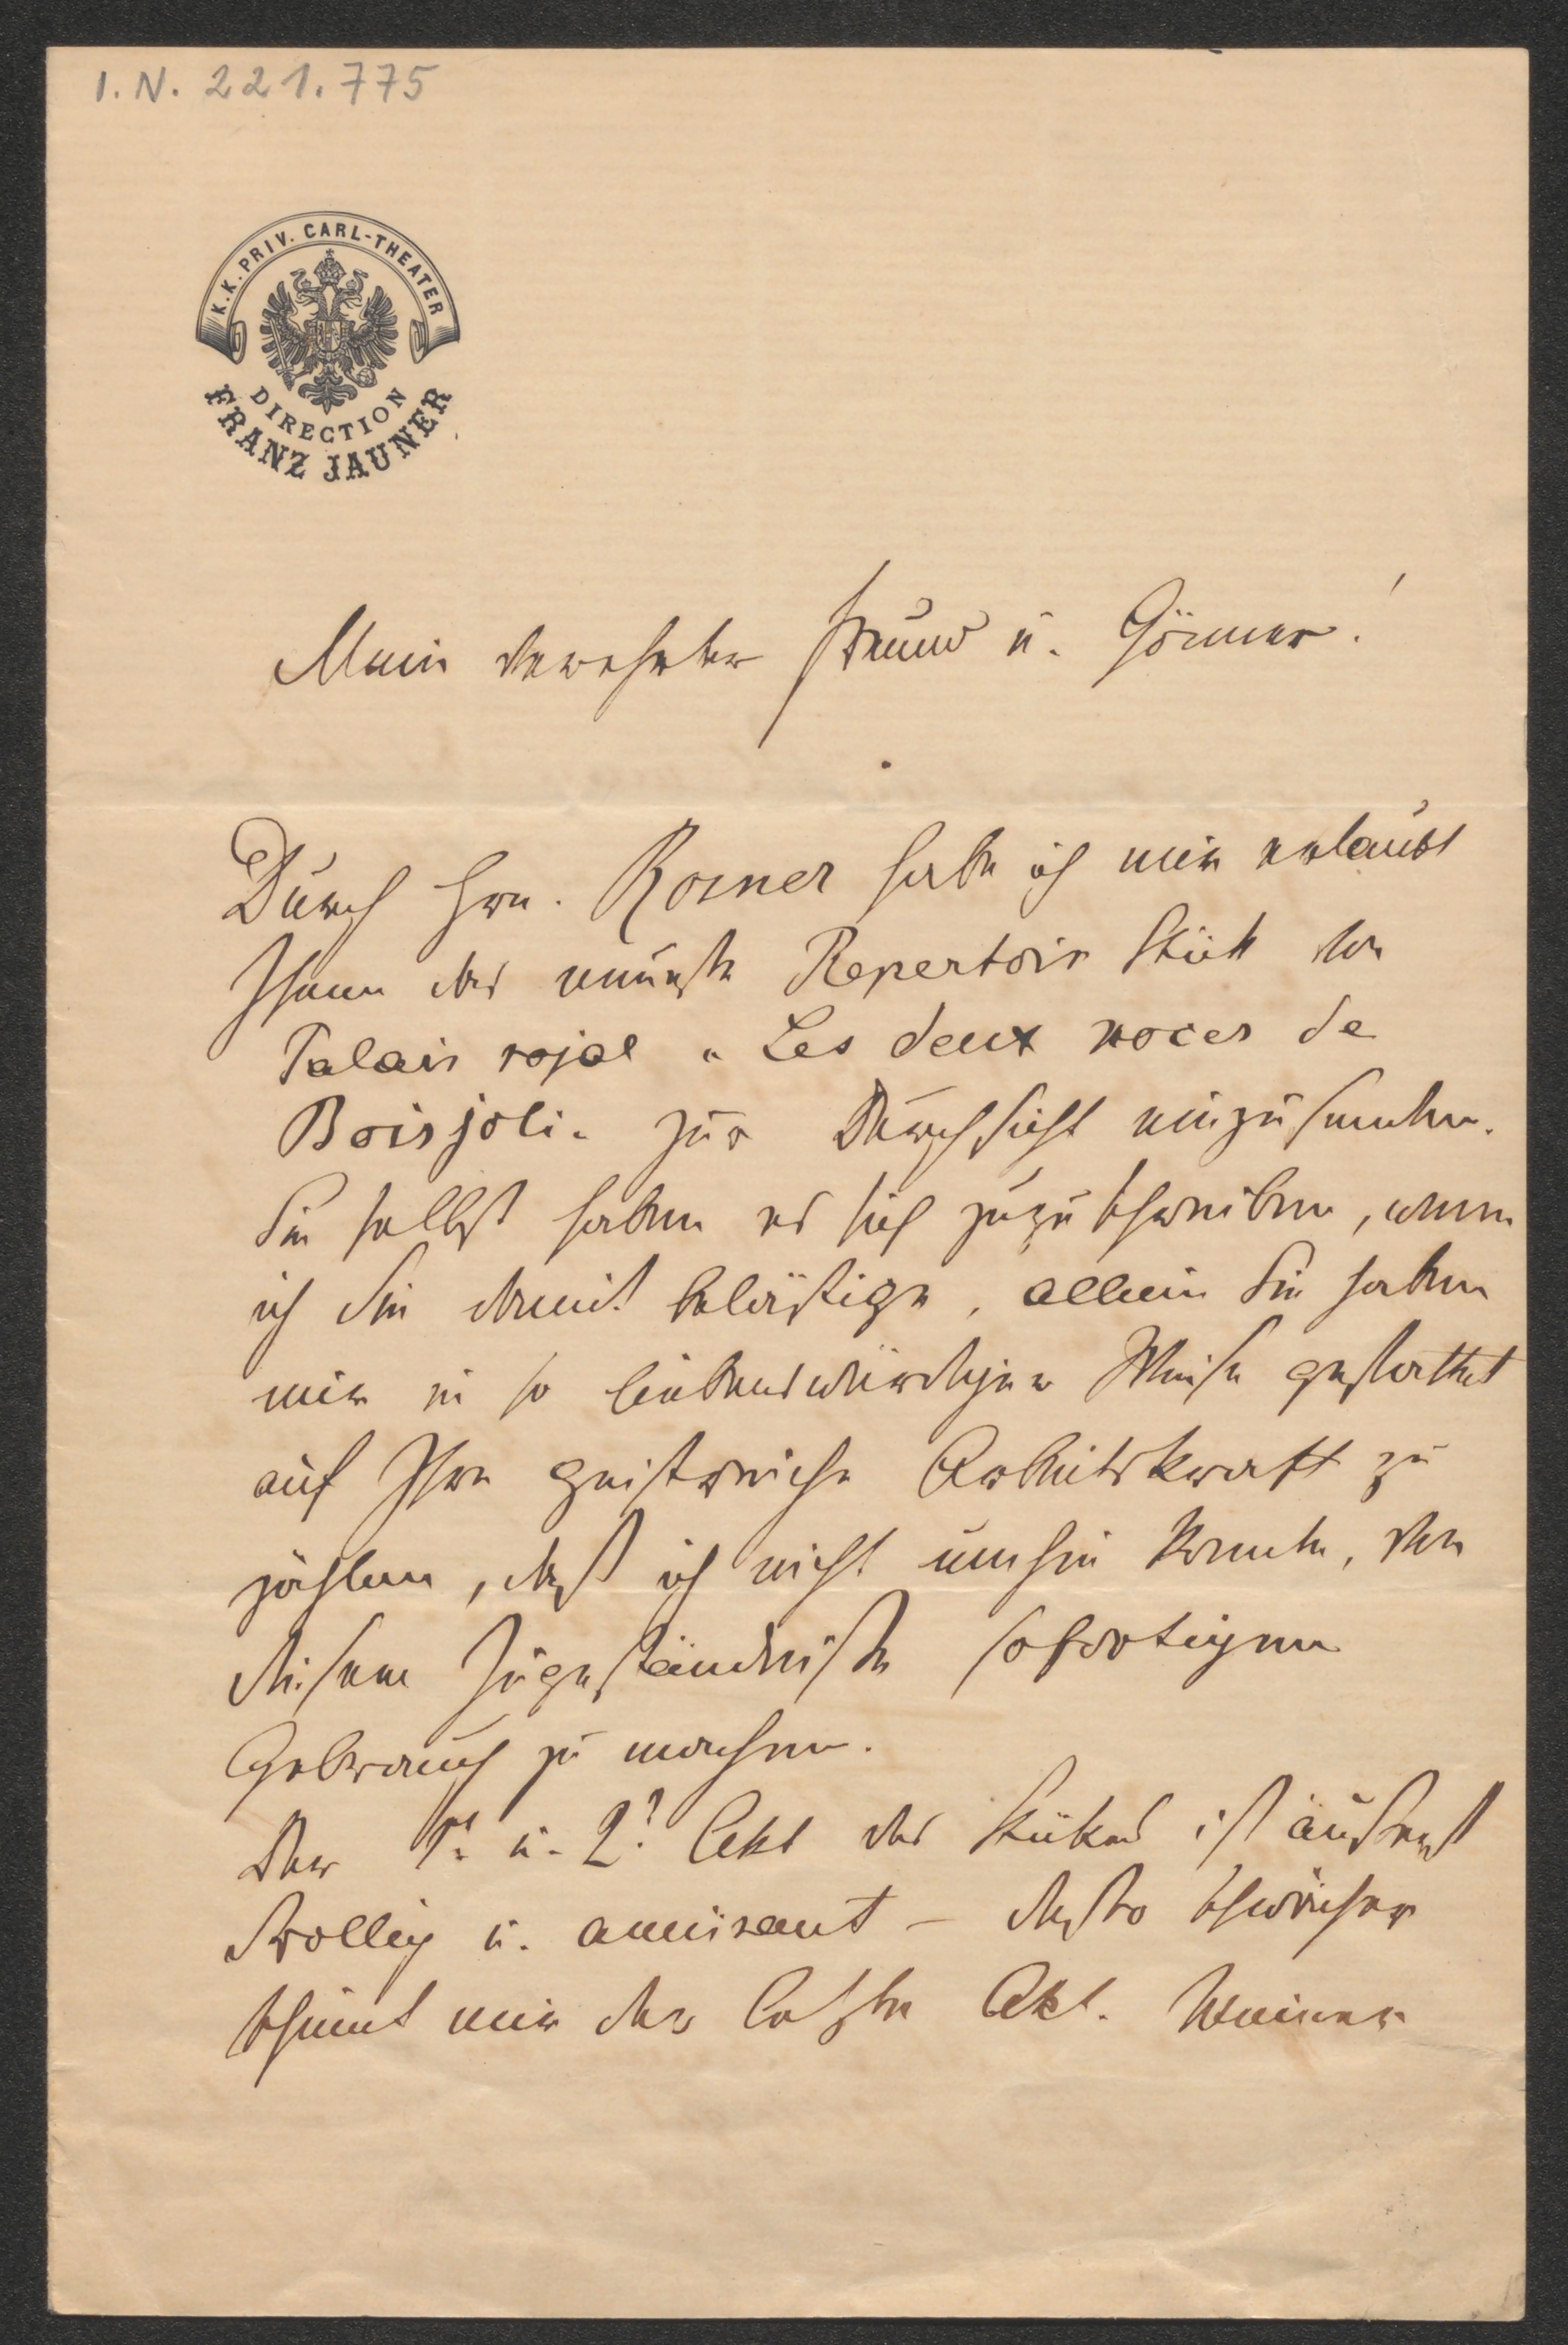 I.N. 221.775
K.K. PRIV. CARL-THEATER
DIRECTION
FRANZ JAUNER
Mein verehrter Freund u. Gönner!
Durch Hrn. Rosner habe ich mir erlaubt
Ihnen das neueste Repertoir Stück des
Palais rojal „Les deux noces de
Boisjoli" zur Durchsicht einzusenden.
Sie selbst haben es sich zuzuschreiben, wenn
ich Sie damit belästige, allein Sie haben
mir in so liebenswürdiger Weise gestattet
auf Ihre geistreiche Arbeitskraft zu
zählen, daß ich nicht umhin konnte, von
diesem Zugeständniße sofortigen
Gebrauch zu machen.
Der 1t. u. 2t. Akt des Stückes ist äußerst
drollig u. amüsant – desto schwächer
scheint mir der letzte Akt. Meiner